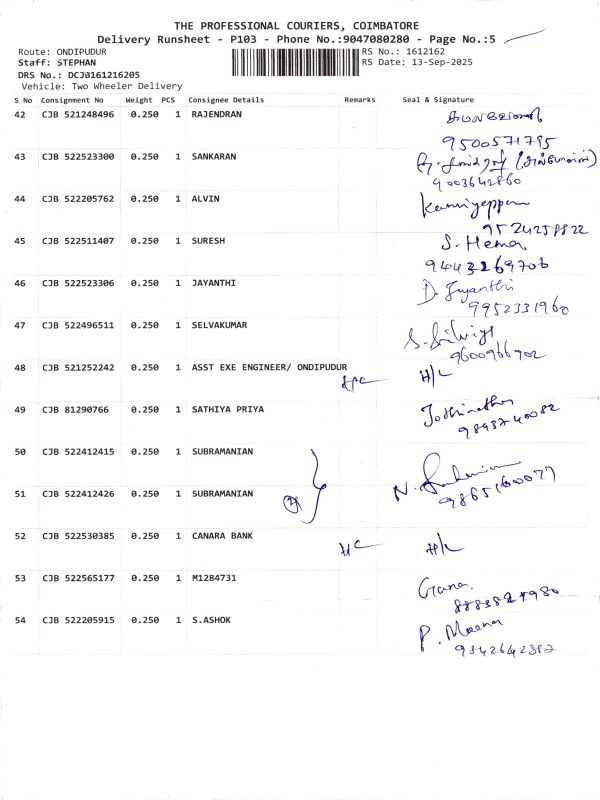 THE PROFESSIONAL COURIERS, COIMBATORE
Delivery Runsheet - P103 - Phone No.:9047080280 - Page No.:5
Route: ONDIPUDUR RS No.: 1612162
Staff: STEPHAN RS Date: 13-Sep-2025
DRS No.: DCJB161216205
Vehicle: Two Wheeler Delivery
S No Consignment No Weight PCS Consignee Details Remarks Seal & Signature
42 CJB 521248496 0.250 1 RAJENDRAN
9500571795
43 CJB 522523300 0.250 1 SANKARAN
9003642860
44 CJB 522205762 0.250 1 ALVIN Kanniyappan
9524258822
45 CJB 522511407 0.250 1 SURESH S. Hema
9443269706
46 CJB 522523306 0.250 1 JAYANTHI D. Jayanthi
9952331960
47 CJB 522496511 0.250 1 SELVAKUMAR
9600966702
48 CJB 521252242 0.250 1 ASST EXE ENGINEER/ ONDIPUDUR H/L
49 CJB 81290766 0.250 1 SATHIYA PRIYA
9893740082
50 CJB 522412415 0.250 1 SUBRAMANIAN
9865160077
51 CJB 522412426 0.250 1 SUBRAMANIAN
52 CJB 522530385 0.250 1 CANARA BANK H/L
53 CJB 522565177 0.250 1 M1284731 Gana
8883827980
54 CJB 522205915 0.250 1 S.ASHOK P. Meena
9842642382